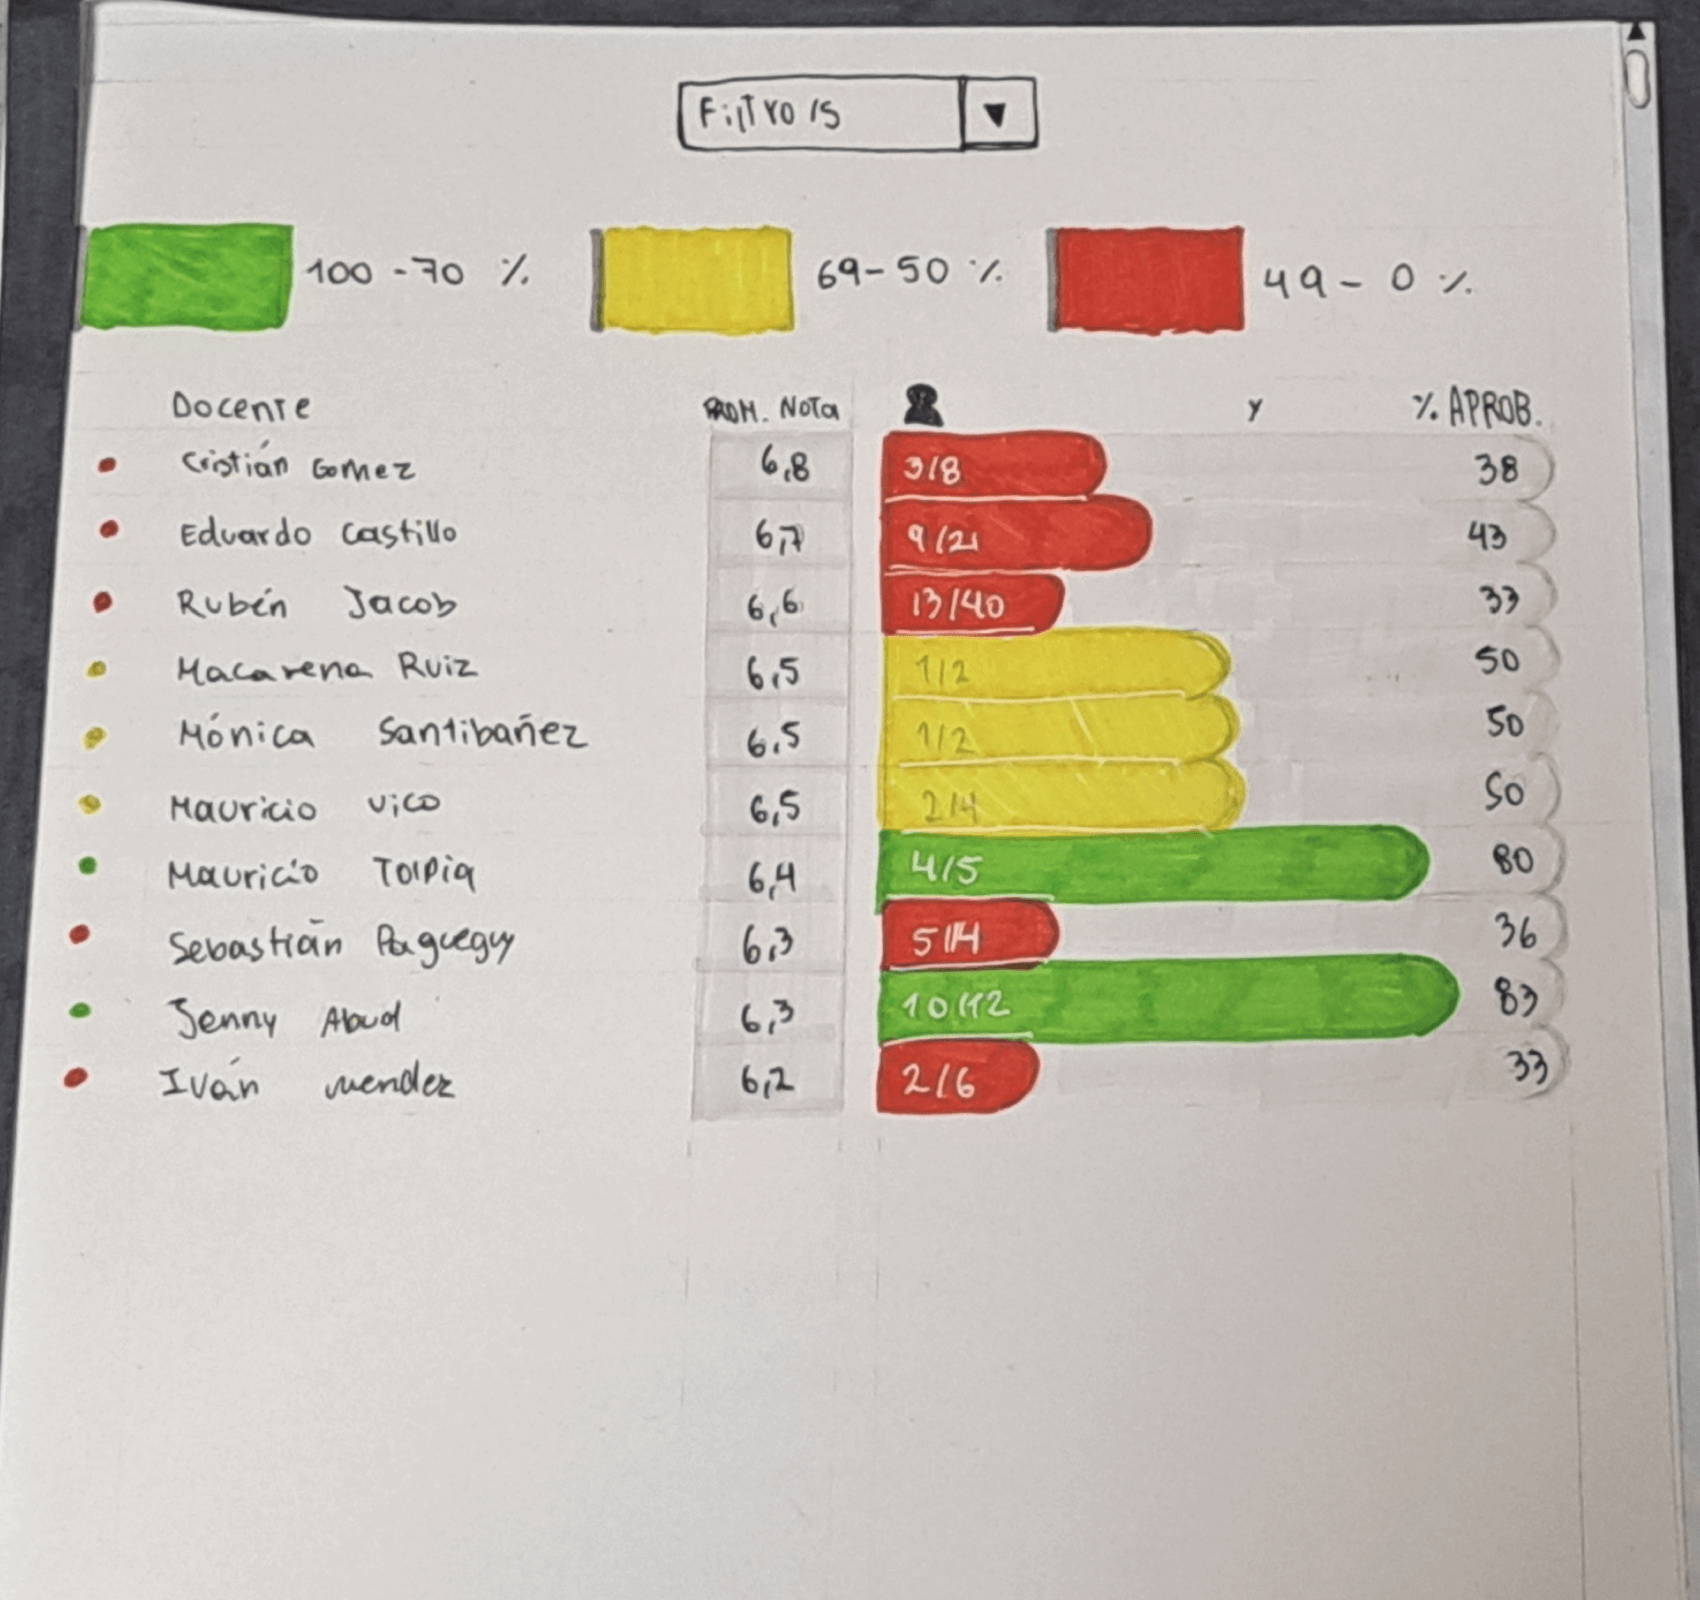 Filtro/s ▼
100 - 70 %
69 - 50 %
49 - 0 %
Docente PROM. NOTA y % APROB.
Cristián Gomez 6,8 3/8 38
Eduardo Castillo 6,7 9/21 43
Rubén Jacob 6,6 13/40 33
Macarena Ruiz 6,5 1/2 50
Mónica Santibañez 6,5 1/2 50
Mauricio Vico 6,5 2/4 50
Mauricio 6,4 4/5 80
Sebastián 6,3 5/14 36
Jenny Abud 6,3 10/12 83
Iván mendez 6,2 2/6 33